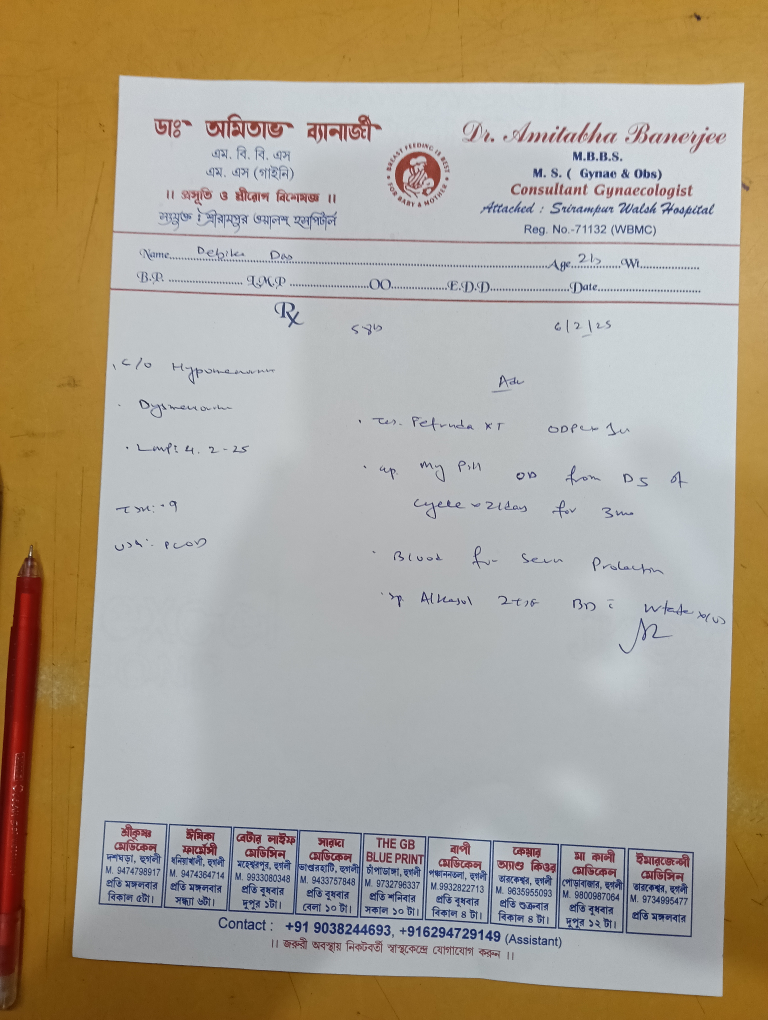 ডাঃ অমিতাভ ব্যানার্জী
এম. বি. বি. এস
এম. এস (গাইনি)
।। প্রসূতি ও স্ত্রীরোগ বিশেষজ্ঞ ।।
সংযুক্ত : শ্রীরামপুর ওয়ালশ হসপিটাল
BREAST FEEDING IS BEST
FOR BABY & MOTHER
Dr. Amitabha Banerjee
M.B.B.S.
M. S. ( Gynae & Obs)
Consultant Gynaecologist
Attached : Srirampur Walsh Hospital
Reg. No.-71132 (WBMC)
Name Das Age Wt.
B.P. L.M.P OO E.D.D Date
Rx
6/2/25
c/o
Dysmenorrh
LMP: 4. 2-25
PCOD
Adv
XT
My Pill OD from D5 of
cycle x 21days for 3mo
Blood for Serum Prolactin
Alkasol BD
শ্রীকৃষ্ণ মেডিকেল
দশঘড়া, হুগলী
M. 9474798917
প্রতি মঙ্গলবার
বিকাল ৫টা।
ঈষিকা ফার্মেসী
ধনিয়াখালী, হুগলী
M. 9474364714
প্রতি মঙ্গলবার
সন্ধ্যা ৬টা।
বেটার লাইফ মেডিসিন
মহেশ্বরপুর, হুগলী
M. 9933080348
প্রতি বুধবার
দুপুর ১টা।
সারদা মেডিকেল
ভাণ্ডারহাটি, হুগলী
M. 9433757848
প্রতি বুধবার
বেলা ১০ টা।
THE GB
BLUE PRINT
চাঁপাডাঙ্গা, হুগলী
M. 9732796337
প্রতি শনিবার
সকাল ১০ টা।
বাপী মেডিকেল
পঞ্চাননতলা, হুগলী
M.9932822713
প্রতি বুধবার
বিকাল ৪ টা।
কেয়ার অ্যাণ্ড কিওর
তারকেশ্বর, হুগলী
M. 9635955093
প্রতি শুক্রবার
বিকাল ৪ টা।
মা কালী মেডিকেল
পোড়াবাজার, হুগলী
M. 9800987064
প্রতি বুধবার
দুপুর ১২ টা।
ইমারজেন্সী মেডিসিন
তারকেশ্বর, হুগলী
M. 9734995477
প্রতি মঙ্গলবার
Contact : +91 9038244693, +916294729149 (Assistant)
।। জরুরী অবস্থায় নিকটবর্তী স্বাস্থ্যকেন্দ্রে যোগাযোগ করুন ।।